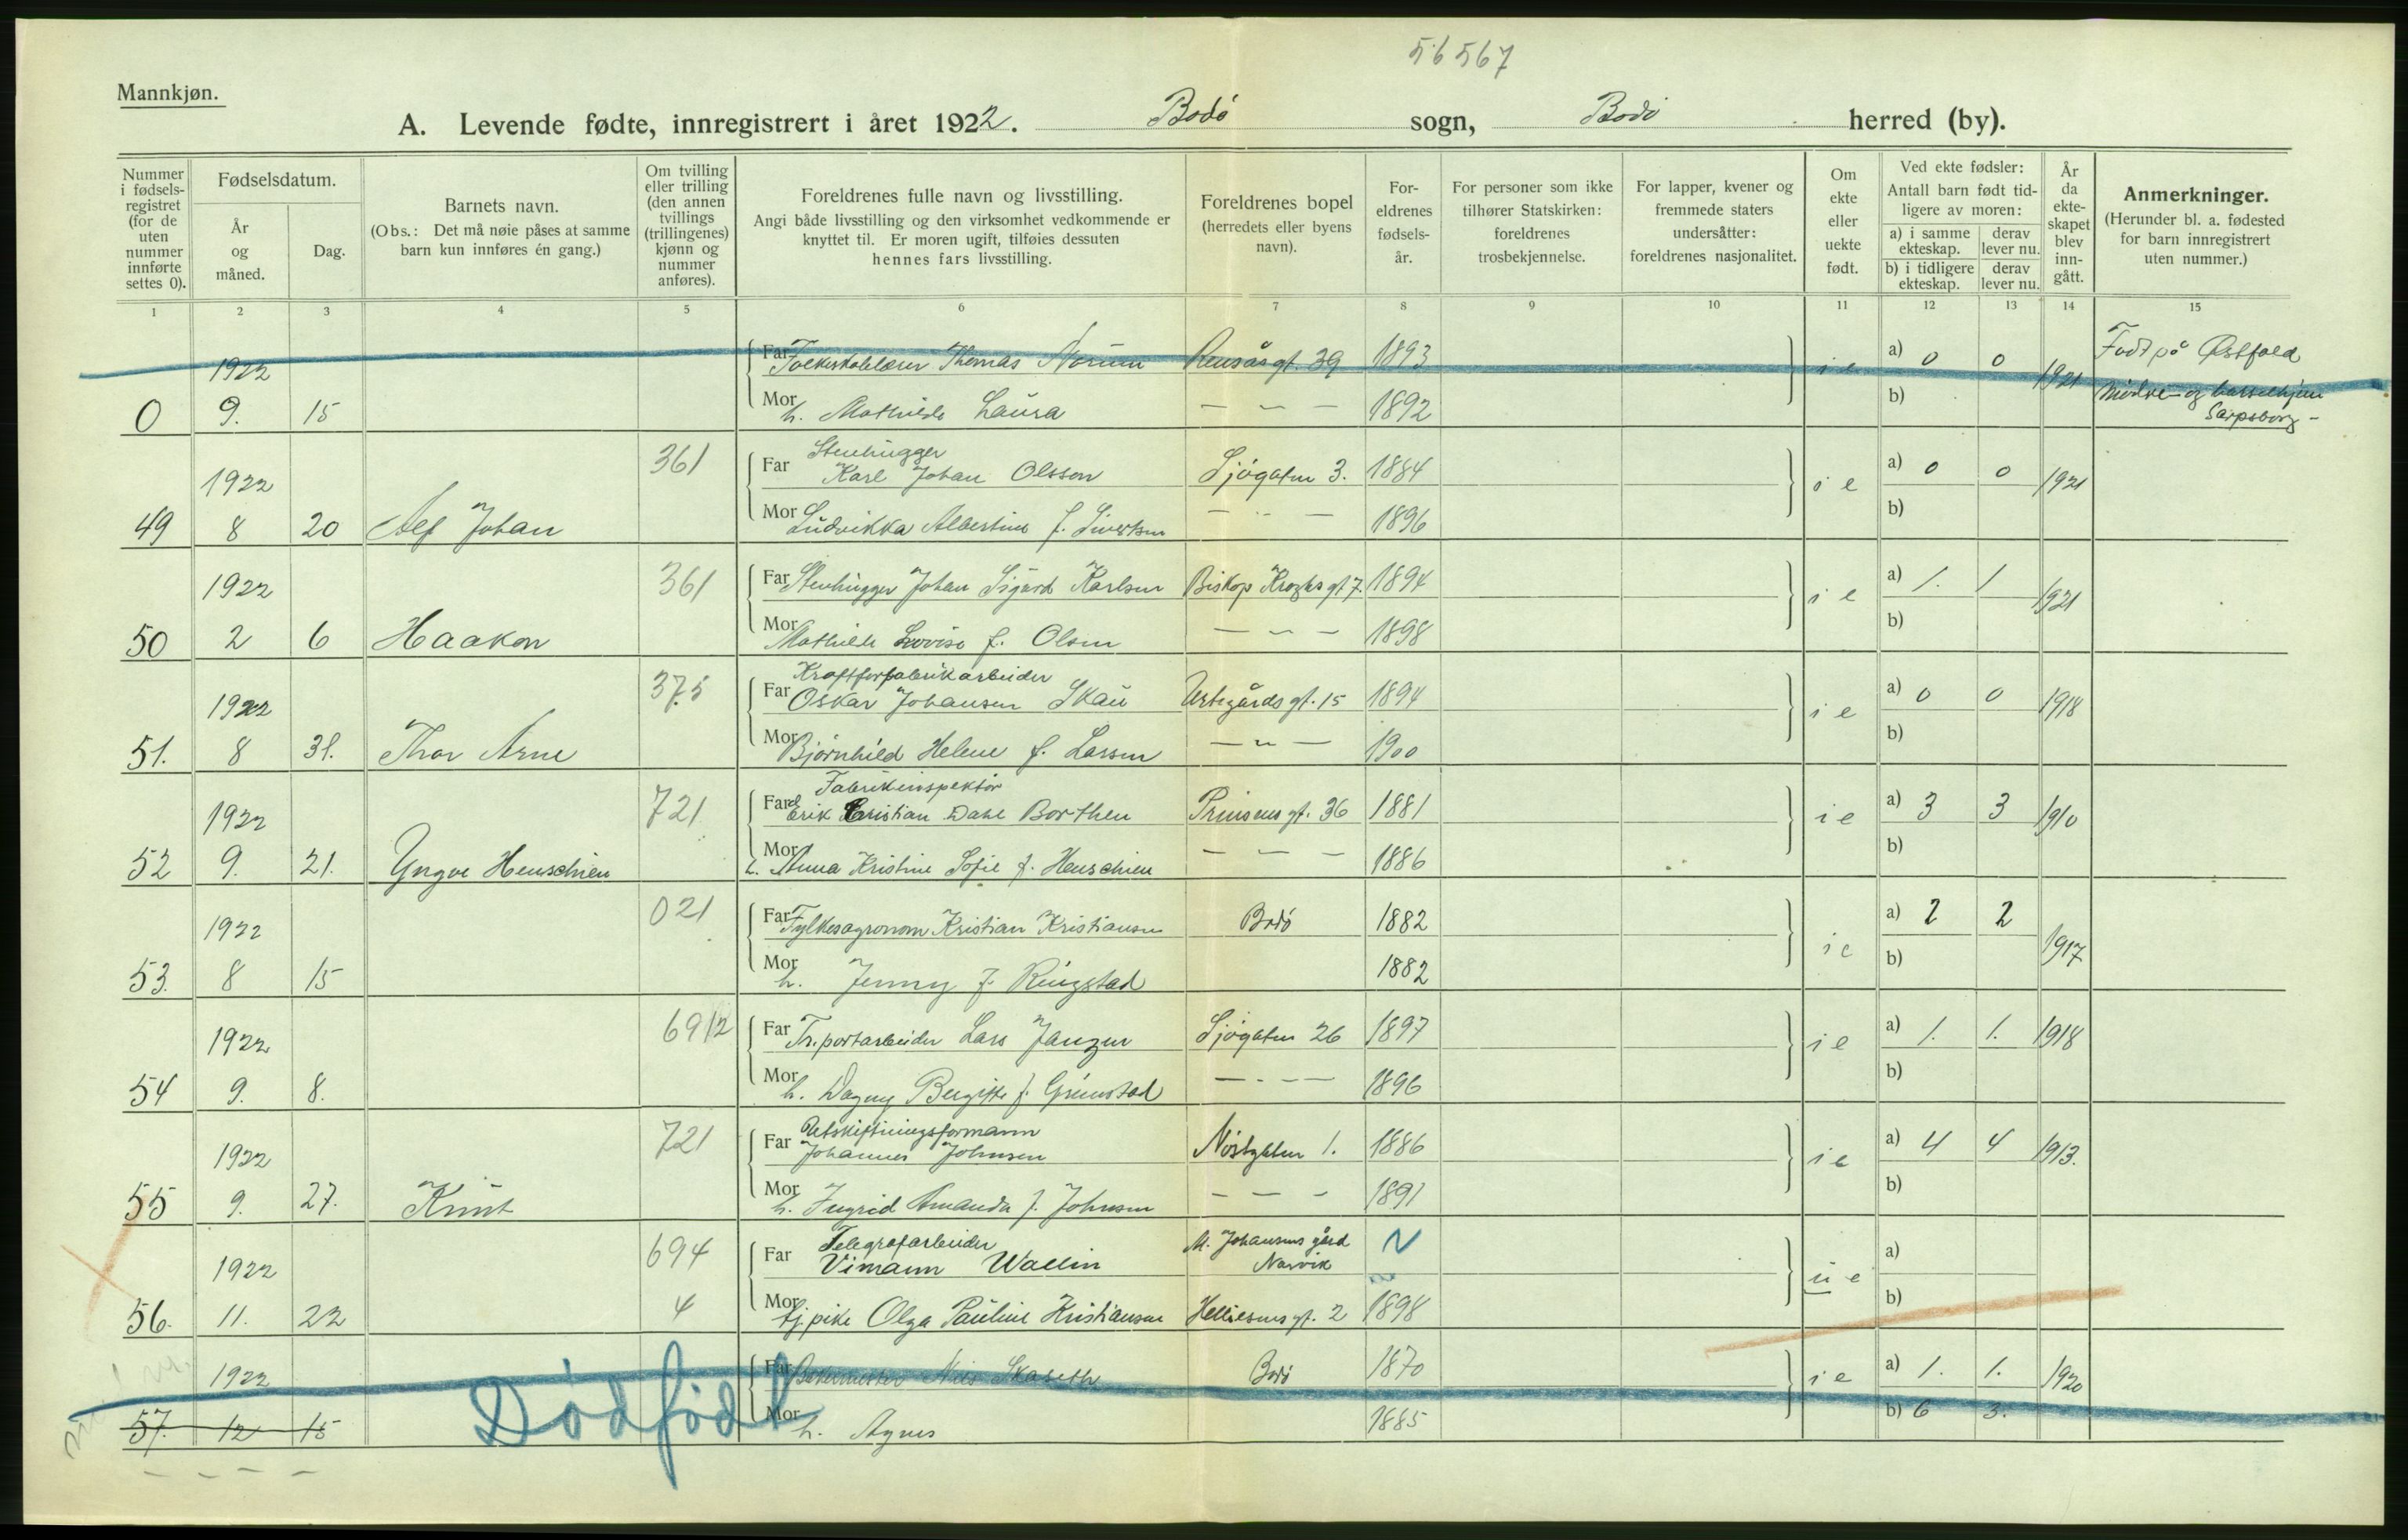 56567
Mannkjøn.
A. Levende fødte, innregistrert i året 1922. Bodø sogn, Bodø herred (by).
Nummer i fødsels-registret (for de uten nummer innførte settes 0).
Fødselsdatum.
År og måned.
Dag.
Barnets navn.
(Obs.: Det må nøie påses at samme barn kun innføres én gang.)
Om tvilling eller trilling (den annen tvillings (trillingenes) kjønn og nummer anføres).
Foreldrenes fulle navn og livsstilling.
Angi både livsstilling og den virksomhet vedkommende er knyttet til. Er moren ugift, tilføies dessuten hennes fars livsstilling.
Foreldrenes bopel (herredets eller byens navn).
For-eldrenes fødsels-år.
For personer som ikke tilhører Statskirken: foreldrenes trosbekjennelse.
For lapper, kvener og fremmede staters undersåtter: foreldrenes nasjonalitet.
Om ekte eller uekte født.
Ved ekte fødsler:
Antall barn født tid-ligere av moren:
a) i samme ekteskap. derav lever nu.
b) i tidligere ekteskap. derav lever nu.
År da ekte-skapet blev inn-gått.
Anmerkninger.
(Herunder bl. a. fødested for barn innregistrert uten nummer.)
1 2 3 4 5 6 7 8 9 10 11 12 13 14 15
1922 Far Folkeskolelærer Thomas Norum Rensåsgt. 39 1893 i e a) 0 0 1921 Født på Østfold
0 9. 15 Mor h. Mathilde Laura — " — 1892 b) Mødre- og barselhjem
Sarpsborg -
361 Stenhugger
1922 Far Karl Johan Olsson Sjøgaten 3. 1884 i e a) 0 0 1921
49 8 20 Alf Johan Mor Ludvikka Albertine f. Sivertsen — " — 1896 b)
1922 361 Far Stenhugger Johan Sigurd Karlsen Biskop Kroghs gt 7. 1894 i e a) 1. 1 1921
50 2 6 Haakon Mor Mathilde Lovise f. Olsen — " — 1898 b)
375 Kraftforfabrikarbeider
1922 Far Oskar Johansen Skau Urtegårds gt. 15 1894 i e a) 0 0 1918
51. 8 31. Thor Arne Mor Bjørnhild Helene f. Larsen — " — 1900 b)
721 Fabrikinspektør
1922 Far Erik Christian Dahl Borthen Prinsens gt. 36 1881 i e a) 3 3 1910
52 9. 21. Yngve Henschien Mor h. Anna Kristine Sofie f. Henschien — — — 1886 b)
1922 021 Far Fylkesagronom Kristian Kristiansen Bodø 1882 i e a) 2 2 1917
53. 8 15 Mor h. Jenny f. Ringstad 1882 b)
1922 6912 Far Tr.portarbeider Lars Janzen Sjøgaten 26 1897 i e a) 1. 1. 1918
54 9. 8. Mor h. Dagny Bergitte f. Grimstad — - — — 1896 b)
721 Utskiftningsformann
1922 Far Johannes Johnsen 1. 1886 i e a) 4 4 1913.
55 9. 27. Knut Mor h. Ingrid Amanda f. Johnsen — — - 1891 b)
694 Telegrafarbeider M. Johansens gård N
1922 Far Vimann Wallin Narvik u e a)
56. 11. 22 4 Mor tj.pike Olga Pauline Kristiansen Hellesens gt. 2 1898 b)
1922 Far Nils Skaseth Bodø 1870 i e a) 1. 1. 1920
57. 12 15 Dødfødt Mor h. Agnes 1885 b) 6 3.
— — — —